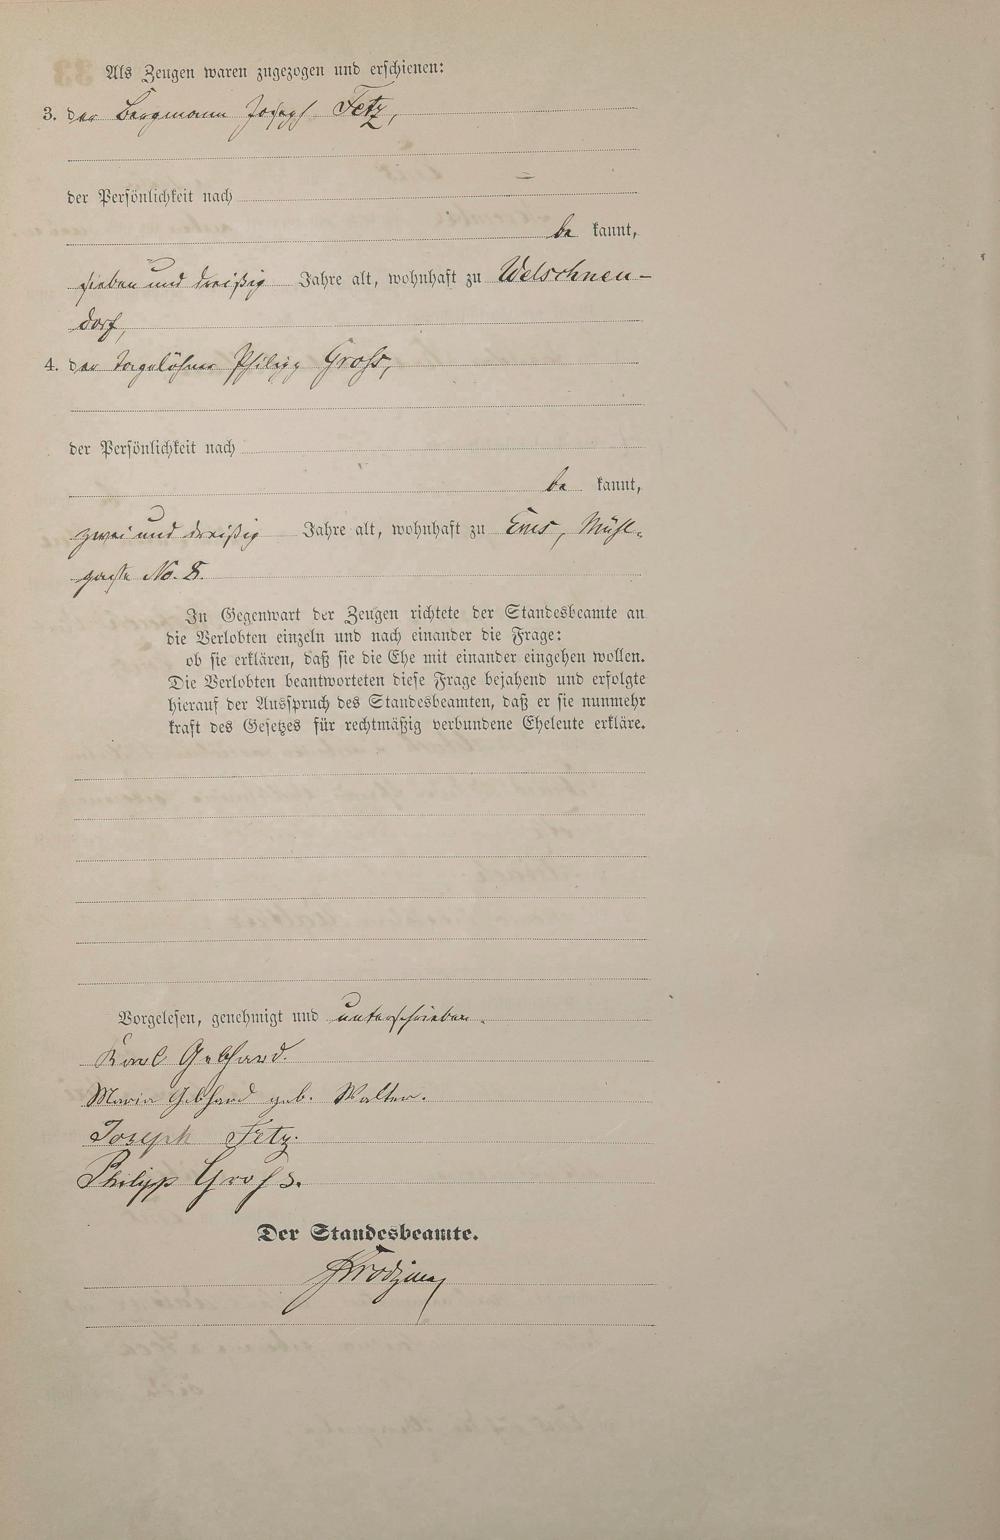 Als Zeugen waren zugezogen und erschienen:
3. der Bergmann Joseph Fetz,
der Persönlichkeit nach
be kannt,
sieben und dreißig Jahre alt, wohnhaft zu Welschneu-
dorf,
4. der Tagelöhner Philipp Groß,
der Persönlichkeit nach
be kannt,
zwei und dreißig Jahre alt, wohnhaft zu Ems, Mühl-
gasse No. 8.
In Gegenwart der Zeugen richtete der Standesbeamte an
die Verlobten einzeln und nach einander die Frage:
ob sie erklären, daß sie die Ehe mit einander eingehen wollen.
Die Verlobten beantworteten diese Frage bejahend und erfolgte
hierauf der Ausspruch des Standesbeamten, daß er sie nunmehr
kraft des Gesetzes für rechtmäßig verbundene Eheleute erkläre.
Vorgelesen, genehmigt und unterschrieben.
Karl Gebhard.
Maria Gebhard geb. Walter.
Joseph Fetz.
Philipp Groß.
Der Standesbeamte.